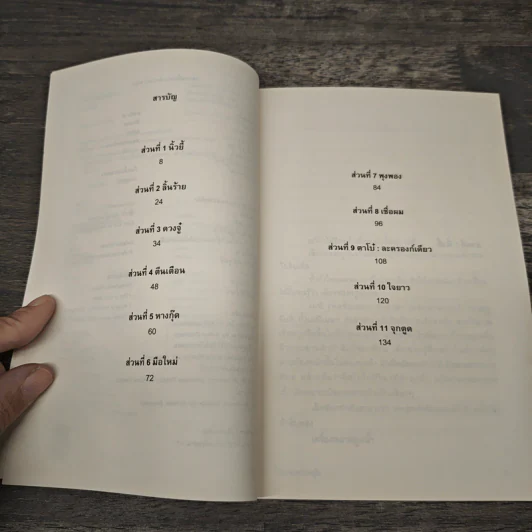 สารบัญ
ส่วนที่ 1 นิ้วยี้
8
ส่วนที่ 2 ลิ้นร้าย
24
ส่วนที่ 3 ดวงจู๋
34
ส่วนที่ 4 ตีนเตือน
48
ส่วนที่ 5 หางกุ๊ด
60
ส่วนที่ 6 มือใหม่
72
ส่วนที่ 7 พุงพอง
84
ส่วนที่ 8 เชื่อผม
96
ส่วนที่ 9 ตาโป๋ : ละครองก์เดียว
108
ส่วนที่ 10 ใจยาว
120
ส่วนที่ 11 จุกตูด
134